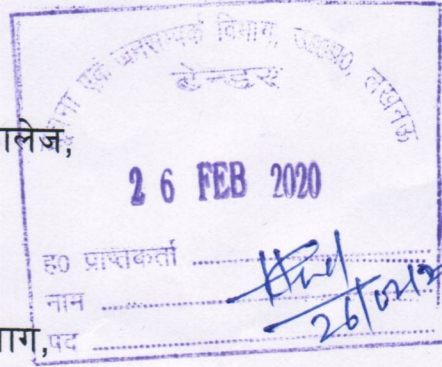 सूचना एवं जनसम्पर्क विभाग, उ0प्र0, लखनऊ
टेन्डर
ालेज,
2 6 FEB 2020
ह0 प्राप्तकर्ता
नाम
26/02/2
ाग,
पद